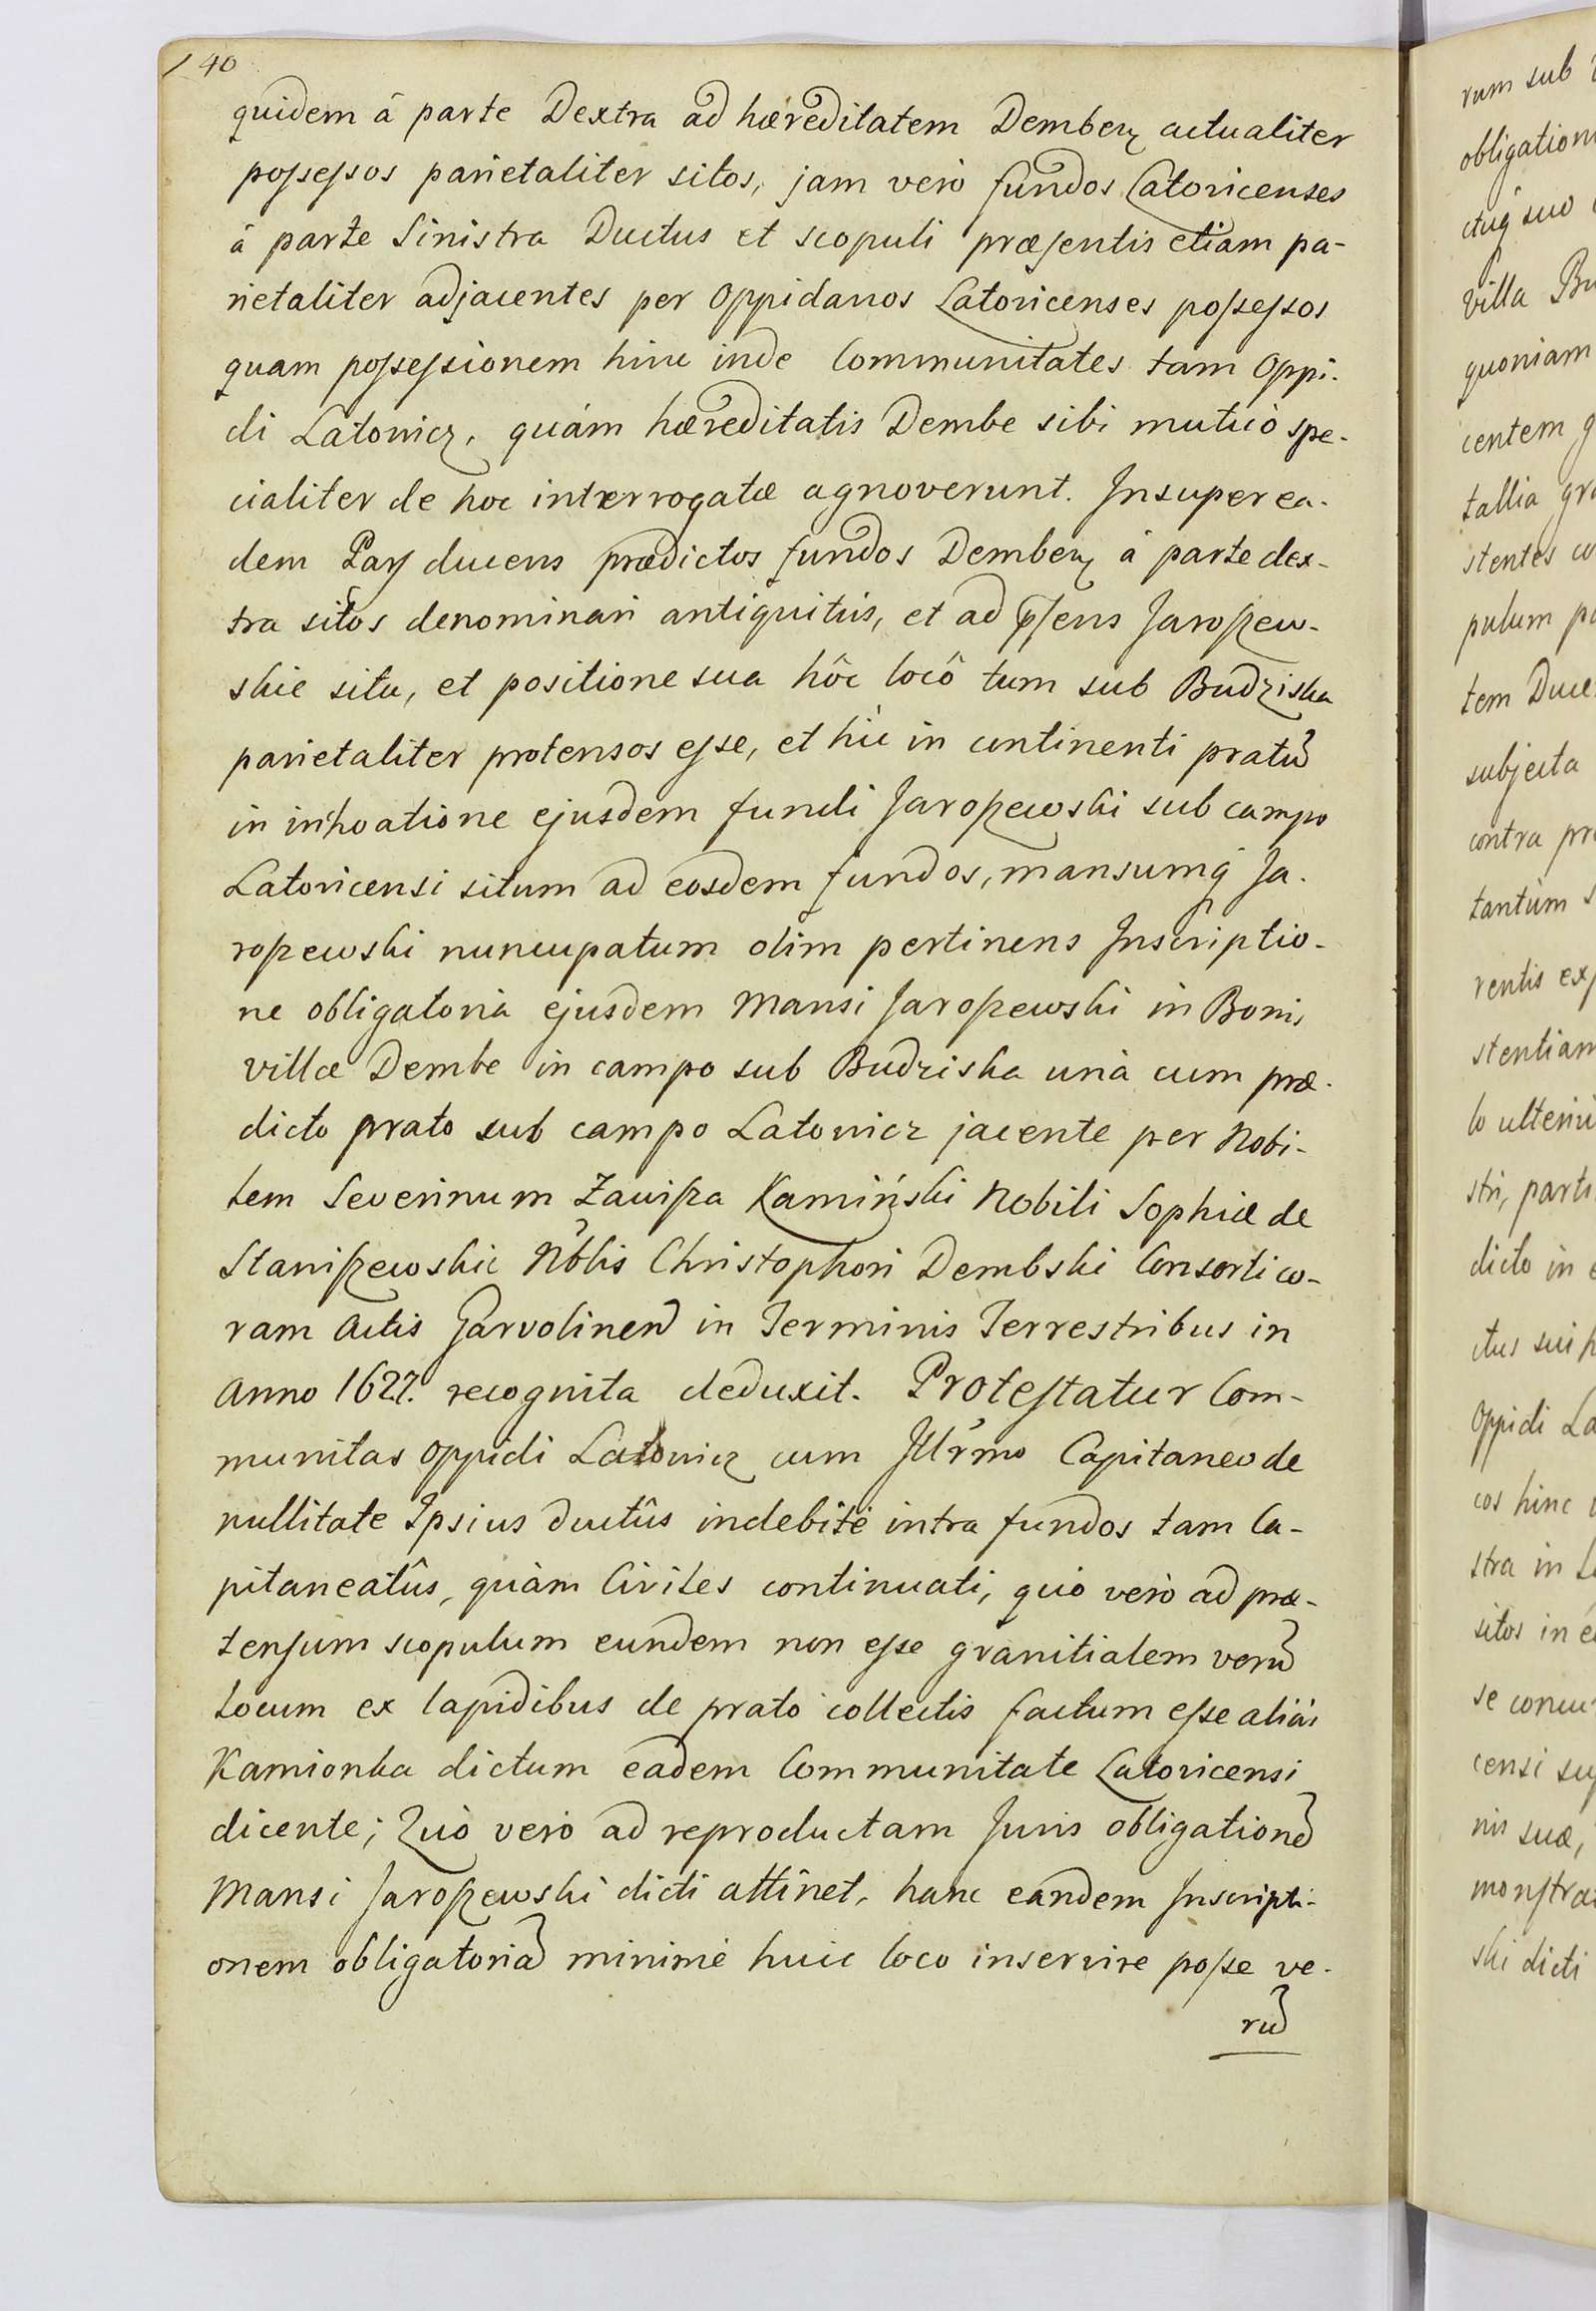 140
quidem â parte Dextra ad hæreditatem Demben͠ actualiter
possessos parietaliter sitos, jam verò fundos Latovicenses
â parte Sinistra Ductus et scopuli præsentis etiam pa-
rietaliter adjacentes per Oppidanos Latovicenses possessos
quam possessionem hinc inde Communitates tam Oppi-
di Latowicz, quám hæreditatis Dembe sibi mutuò spe-
cialiter de hoc interrogatæ agnoverunt. Insuper ea-
dem Pars ducens prædictos fundos Demben͠ â parte dex-
tra sitos denominari antiquitùs, et ad p͠sens Jaroszew-
skie situ, et positione sua hôc locô tum sub Budziska
parietaliter protensos esse, et hìc in continenti pratu͠
in inhoatione ejusdem fundi Jaroszewski sub campo
Latovicensi situm ad eosdem fundos, mansumq́ Ja-
roszewski nuncupatum olim pertinens Inscriptio-
ne obligatoria ejusdem Mansi Jaroszewski in Bonis
villæ Dembe in campo sub Budziska unà cum præ-
dicto prato sub campo Latowicz jacente per Nobi-
lem Severinum Zawisza Kamiński Nobili Sophiæ de
Staniszewskie No͠blis Christophori Dembski Consorti co-
ram Actis Garvolinen͠ in Terminis Terrestribus in
Anno 1627. recognita deduxit. Protestatur Com-
munitas Oppidi Latowicz cum Ill͠rmo Capitaneo de
nullitate Ipsius ductûs indebitè intra fundos tam Ca-
pitaneatûs, quàm Civiles continuati, quo verò ad præ-
tensum scopulum eundem non esse granitialem veru͠
locum ex lapidibus de prato collectis factum esse aliàs
Kamionka dictum eadem Communitate Latovicensi
dicente; Quò verò ad reproductam Juris obligatione͠
Mansi Jaroszewski dicti attinet, hanc eandem Inscripti-
onem obligatoria͠ minimè huic loco inservire posse ve-
ru͠
rum sub
obligation
ctuq́ suo
Villa Bu
quoniam
centem q
tallia gra
stentes co
pulum pa
tem Duce
subjecta
contra pr
tantùm s
rentis ex
stentiam
lo ulteriù
stri, parti
dicto in
ctus sui p
Oppidi La
cos hinc
stra in
sitos in
se concer
censi su
nis suæ,
monstra
ski dicti